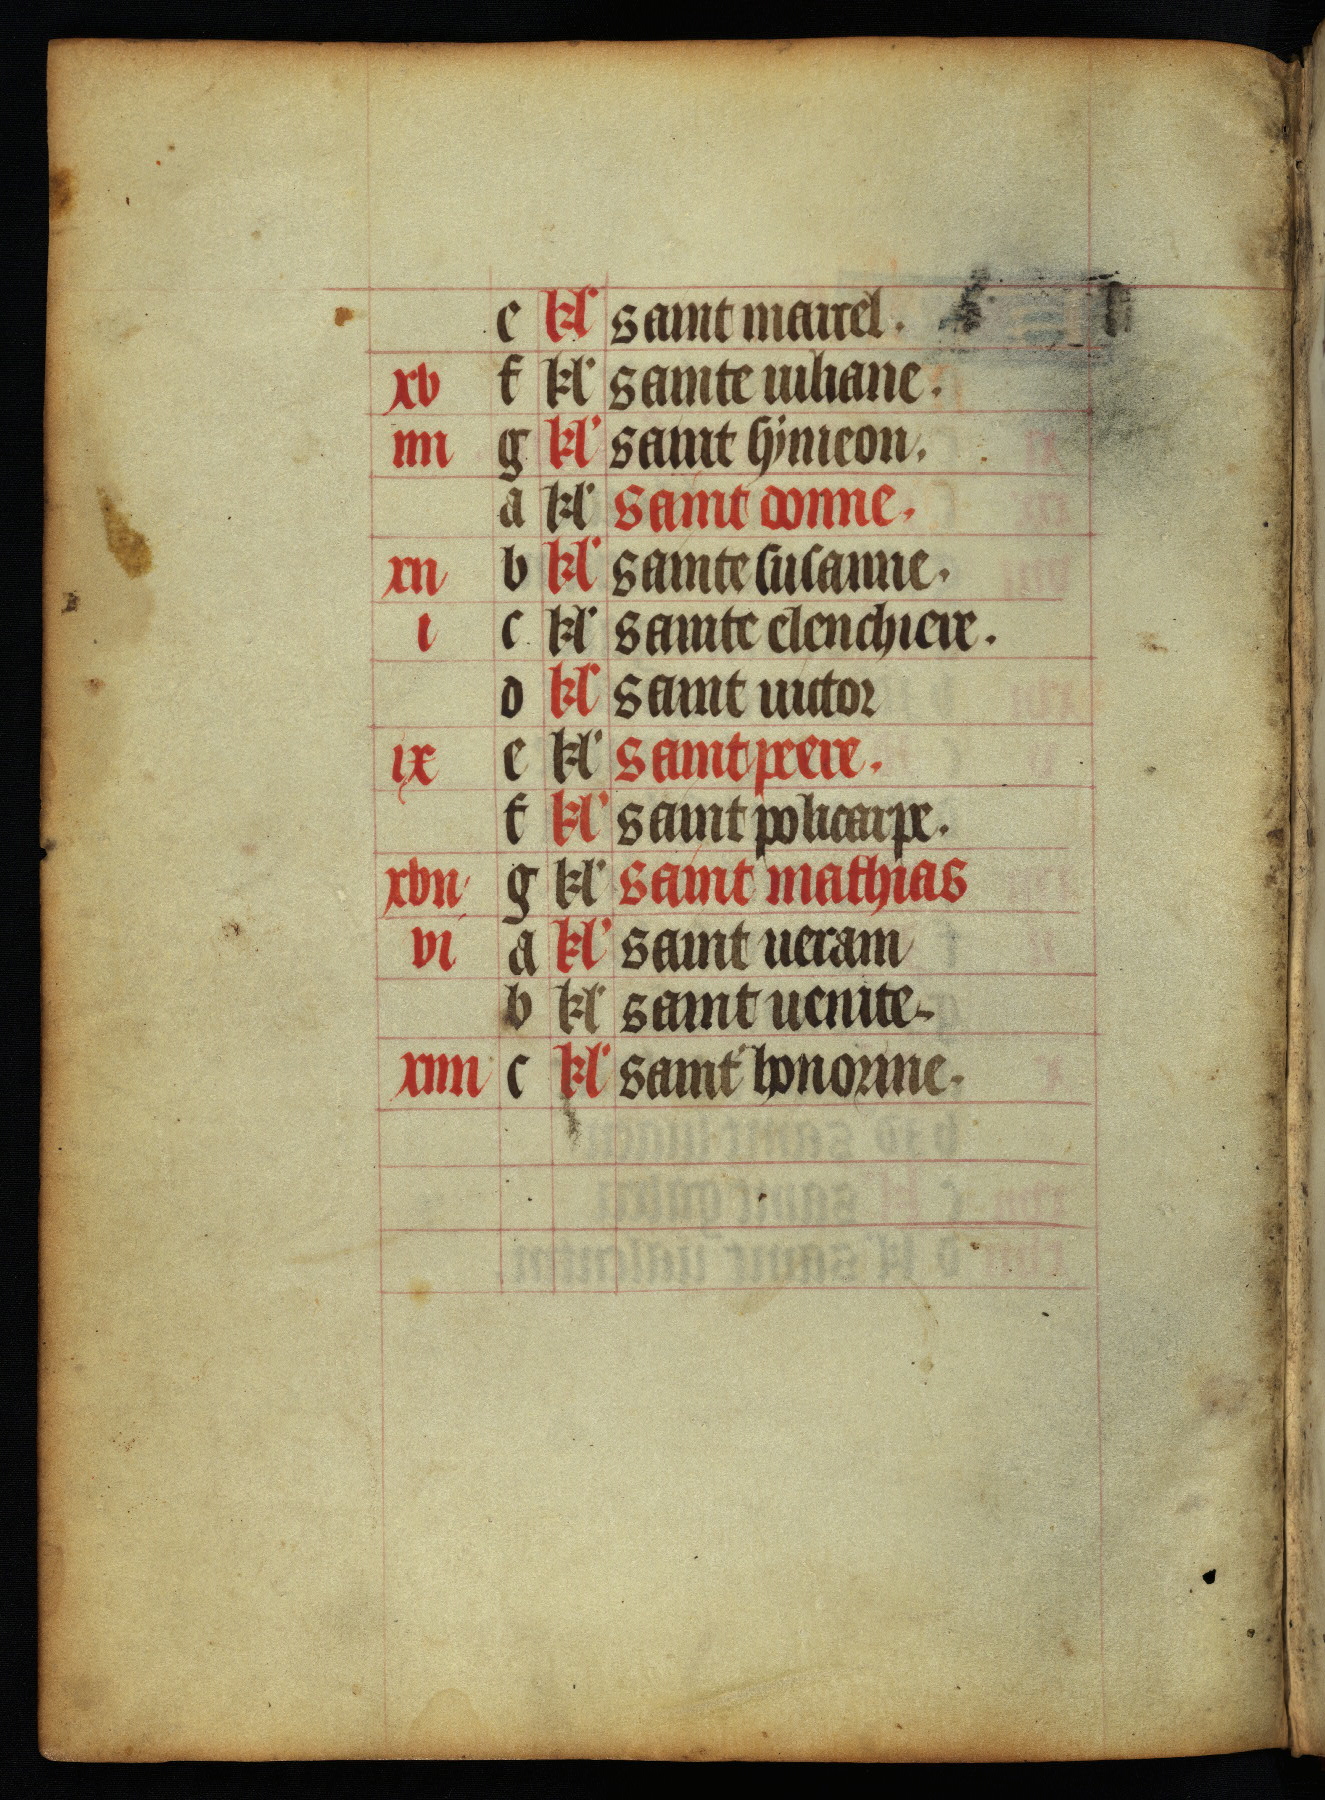 e kl' saint maircel.
xv f kl' sainte iuliane.
iiii g kl' saint symeon.
a kl' saint donne.
xii b kl' sainte susanne.
i c kl' sainte elenchiere.
d kl' saint uictor
ix e kl' saint peere.
f kl' saint policarpe.
xvii g kl' saint mathias
vi a kl' saint ueram
b kl' saint uenite.
xiiii c kl' saint honorine.